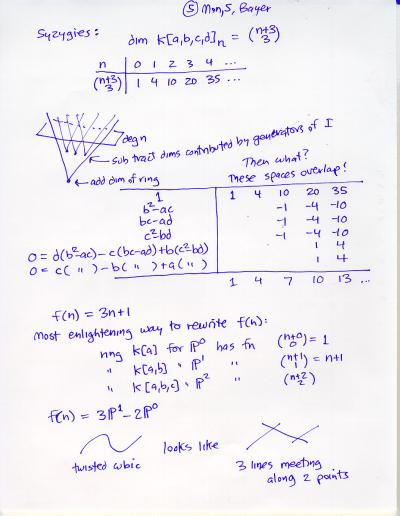 ⑤ Mon, 5, Bayer
Syzygies:
dim k[a,b,c,d]ₙ = (n+3 3)
n 0 1 2 3 4 ...
(n+3 3) 1 4 10 20 35 ...
deg n
subtract dims contributed by generators of I
add dim of ring
Then what?
These spaces overlap!
1 1 4 10 20 35
b²-ac -1 -4 -10
bc-ad -1 -4 -10
c²-bd -1 -4 -10
0 = d(b²-ac) - c(bc-ad) + b(c²-bd) 1 4
0 = c( " ) - b( " ) + a( " ) 1 4
1 4 7 10 13 ...
f(n) = 3n+1
Most enlightening way to rewrite f(n):
ring k[a] for P⁰ has fn (n+0 0) = 1
" k[a,b] " P¹ " (n+1 1) = n+1
" k[a,b,c] " P² " (n+2 2)
f(n) = 3P¹ - 2P⁰
looks like
twisted cubic
3 lines meeting
along 2 points